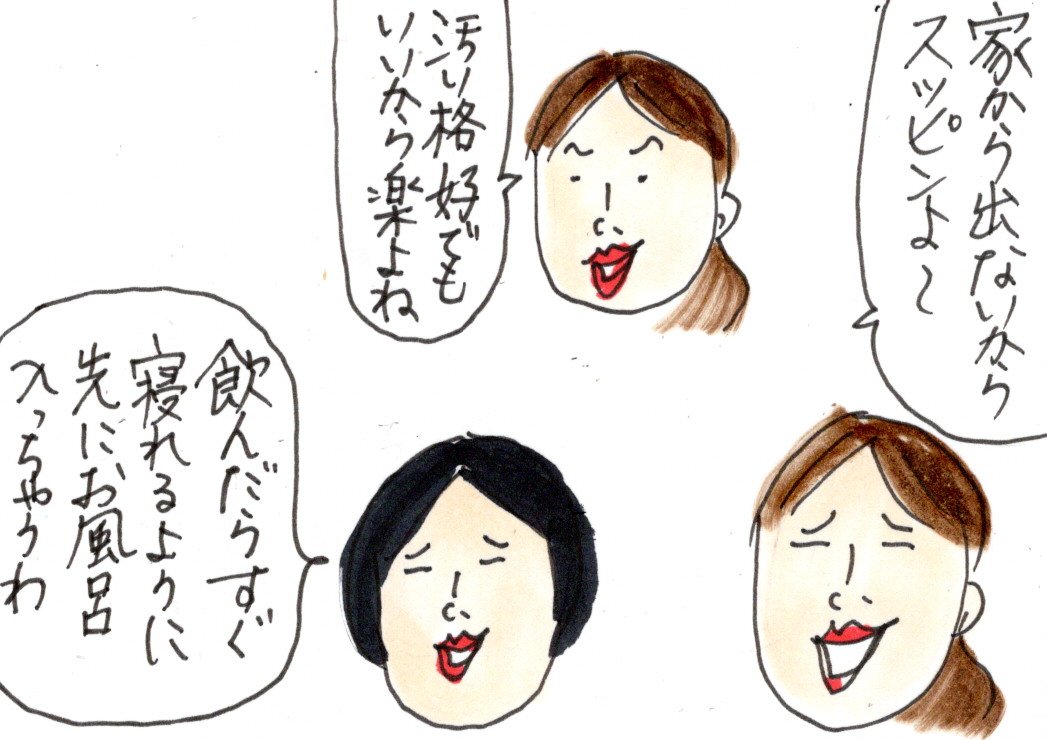 家から出ないから
スッピンよ~
汚い格好でも
いいから楽よね
飲んだらすぐ
寝れるように
先にお風呂
入っちゃうわ